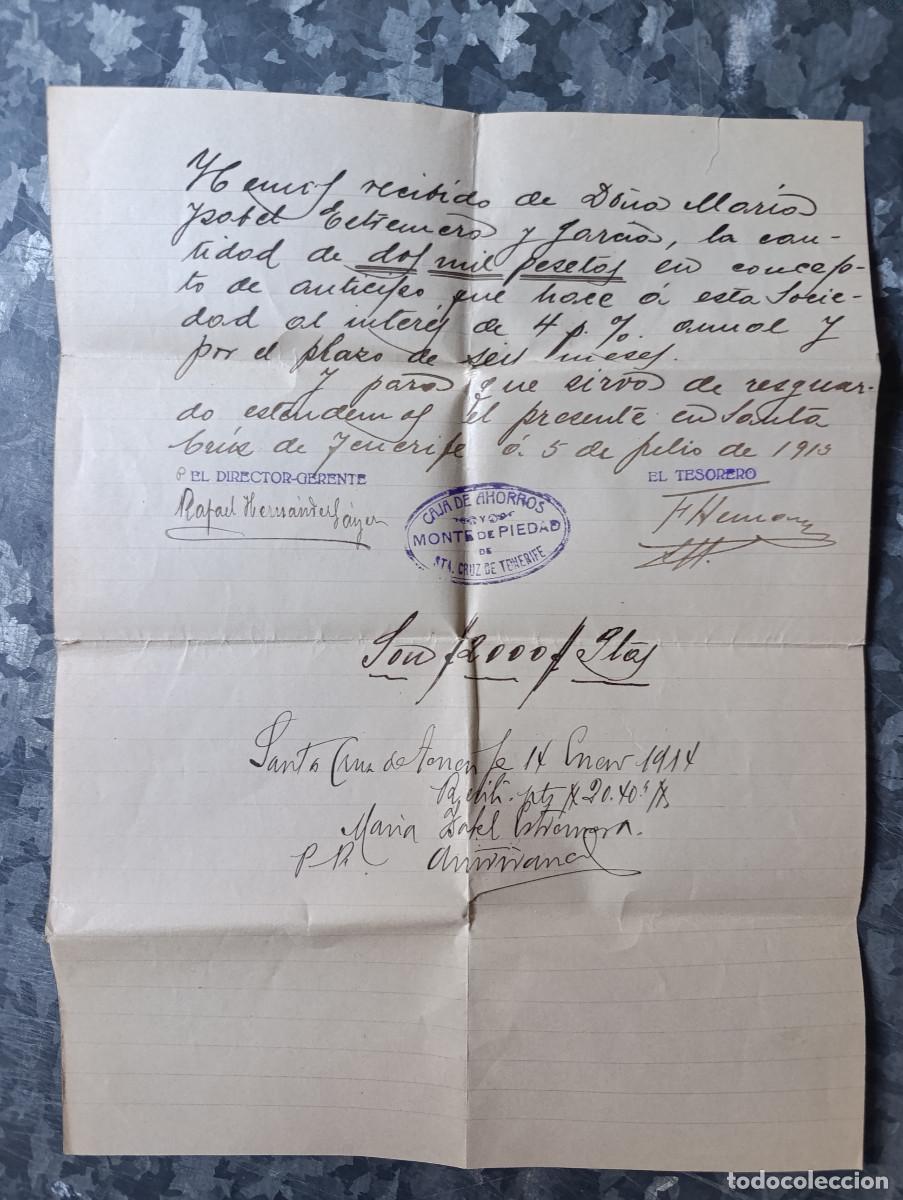 Hemos recibido de Doña Maria
Ysabel Estremera y Garcia, la can-
tidad de dos mil pesetas en concep-
to de anticipo, que hace á esta Socie-
dad al interes de 4 p.% anual y
por el plazo de seis meses.
Y para que sirva de resguar-
do estendemos el presente en Santa
Cruz de Tenerife á 5 de Julio de 1913
P EL DIRECTOR-GERENTE
EL TESORERO
Rafael Hernández
CAJA DE AHORROS
Y
MONTE DE PIEDAD
DE
STA. CRUZ DE TENERIFE
Son // 2000 // Ptas
Santa Cruz de Tenerife 14 Enero 1914
Recibi ptz
Maria Isabel Estremera.
P.
todocoleccion